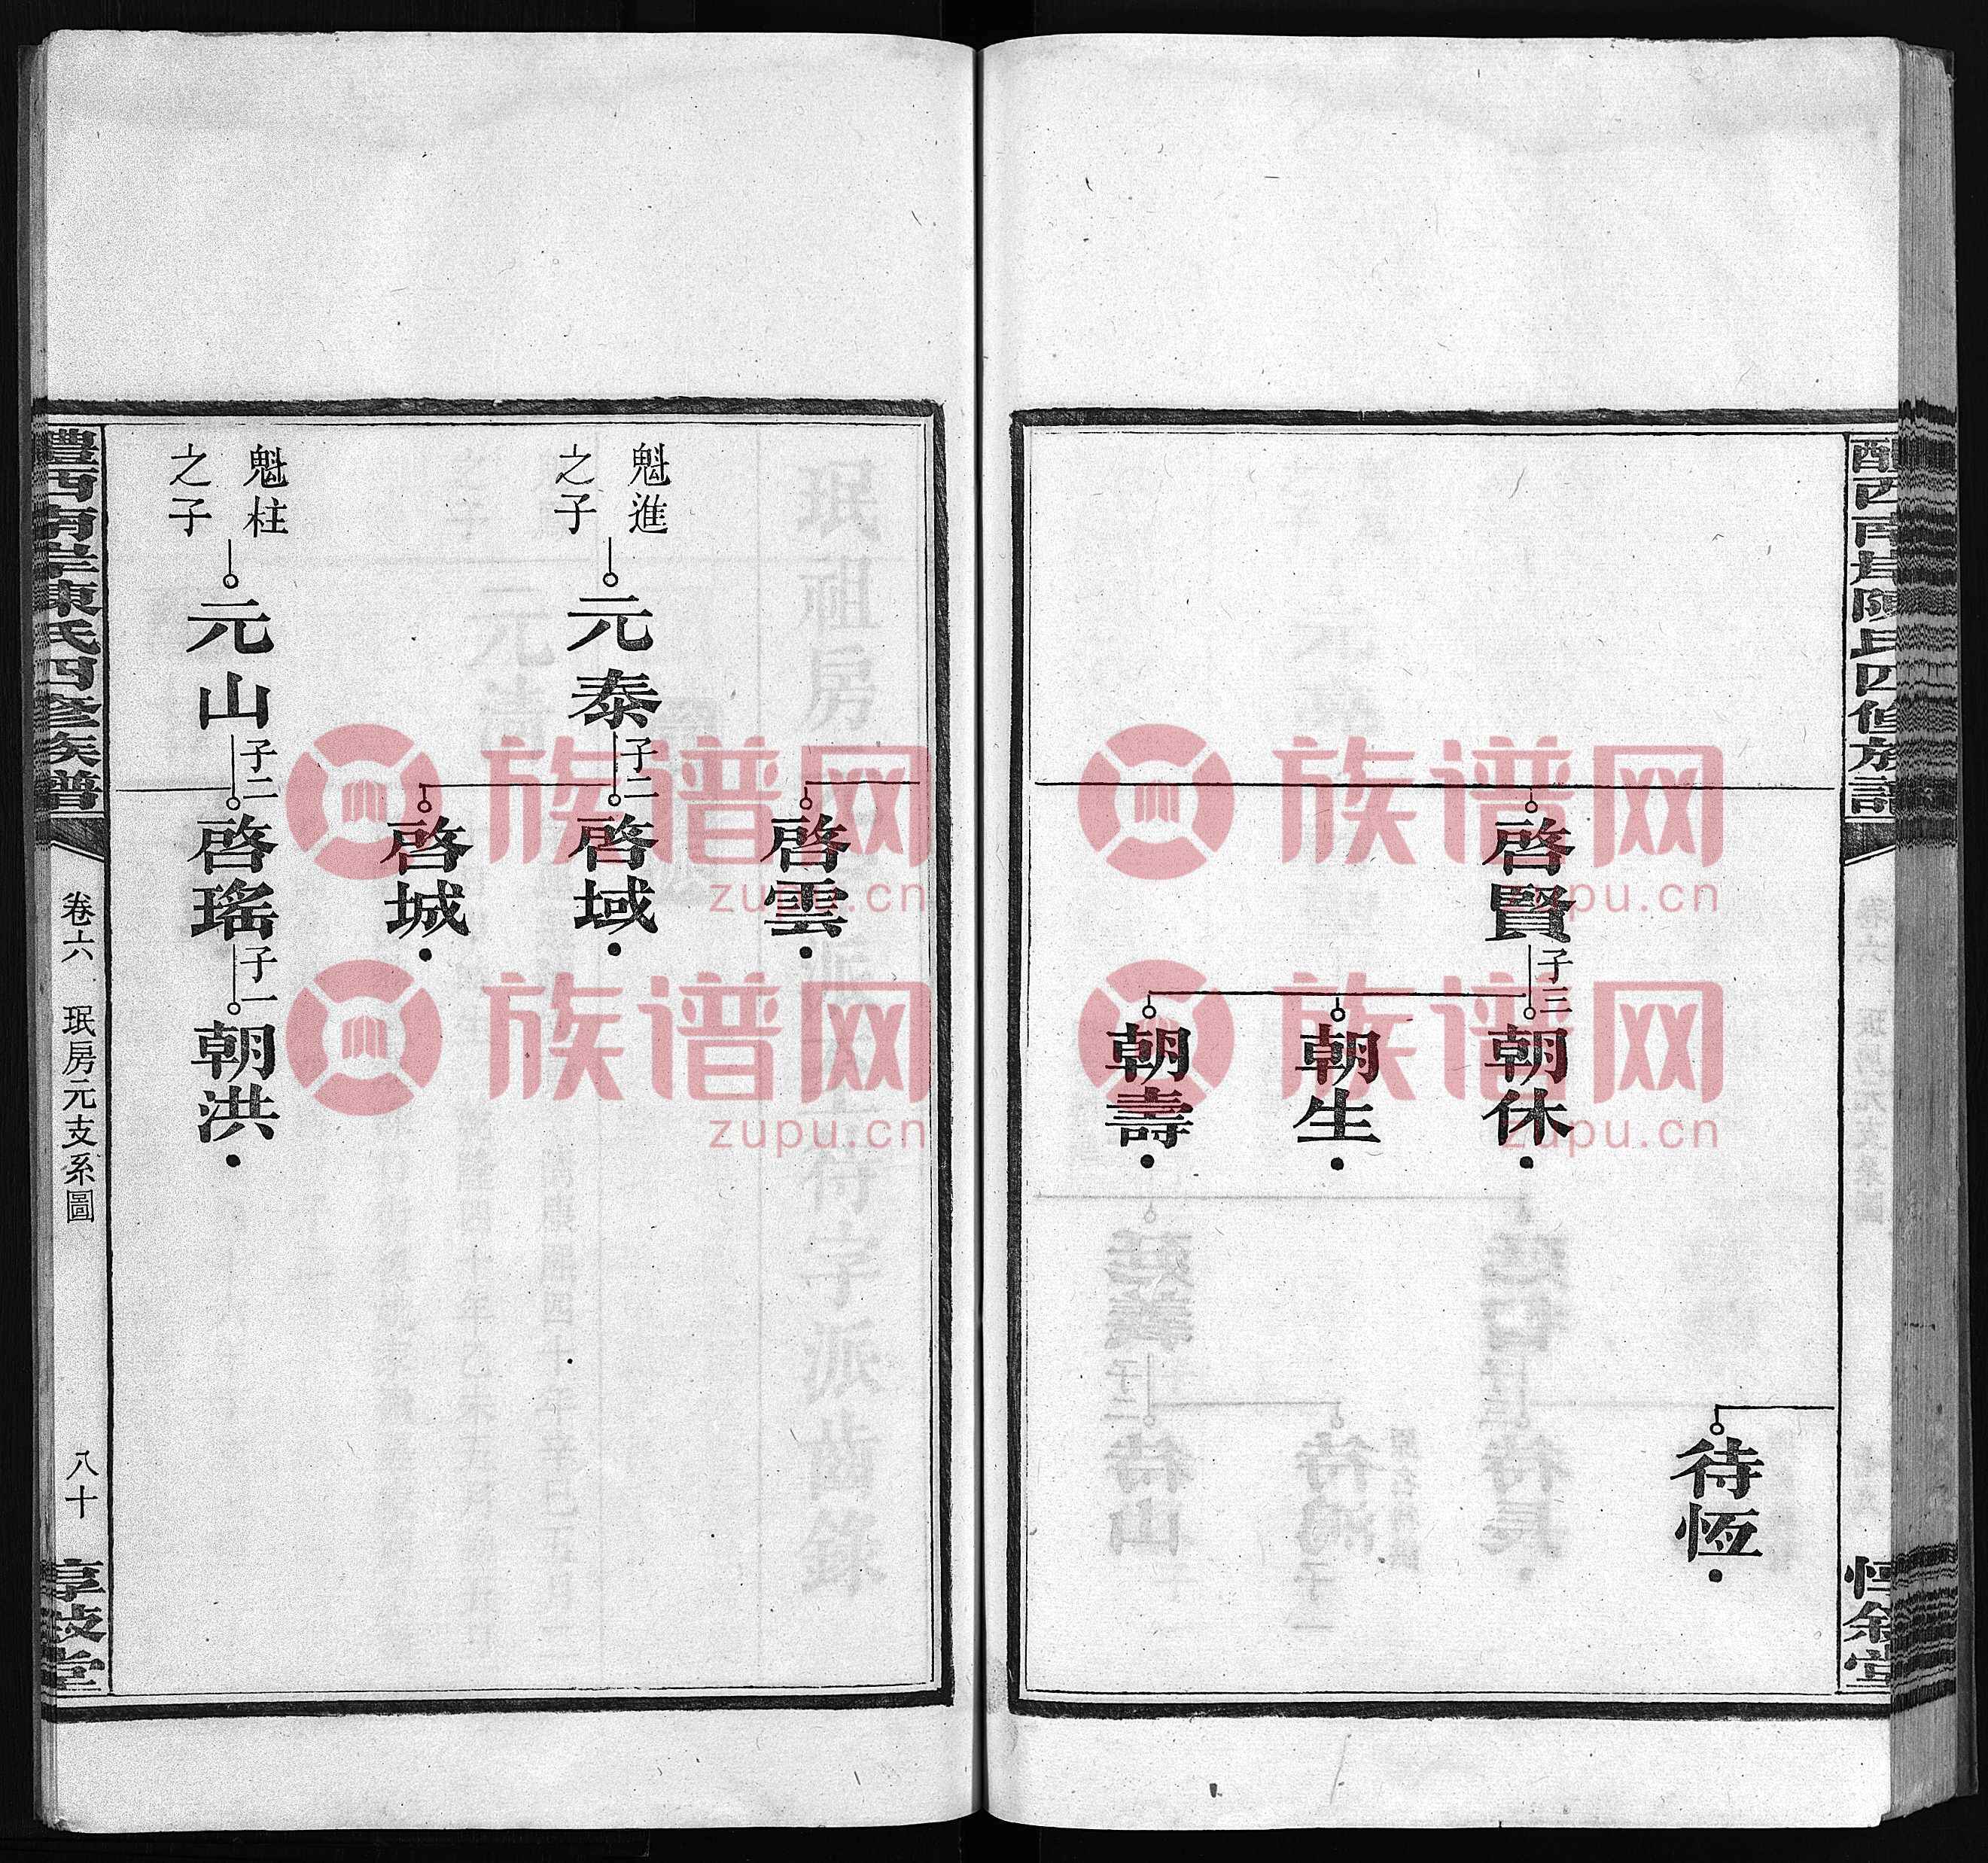 醴西南岸陳氏四修族譜
惇敘堂
待恆
啓賢
子三
朝休
朝生
朝壽
啓雲
魁進
之子
元泰
子二
啓域
啓城
魁柱
之子
元山
子二
啓瑤
子一
朝洪
醴西南岸陳氏四修族譜
卷六
珉房元支系圖
八十
惇敘堂
族谱网
zupu.cn
族谱网
zupu.cn
族谱网
zupu.cn
族谱网
zupu.cn